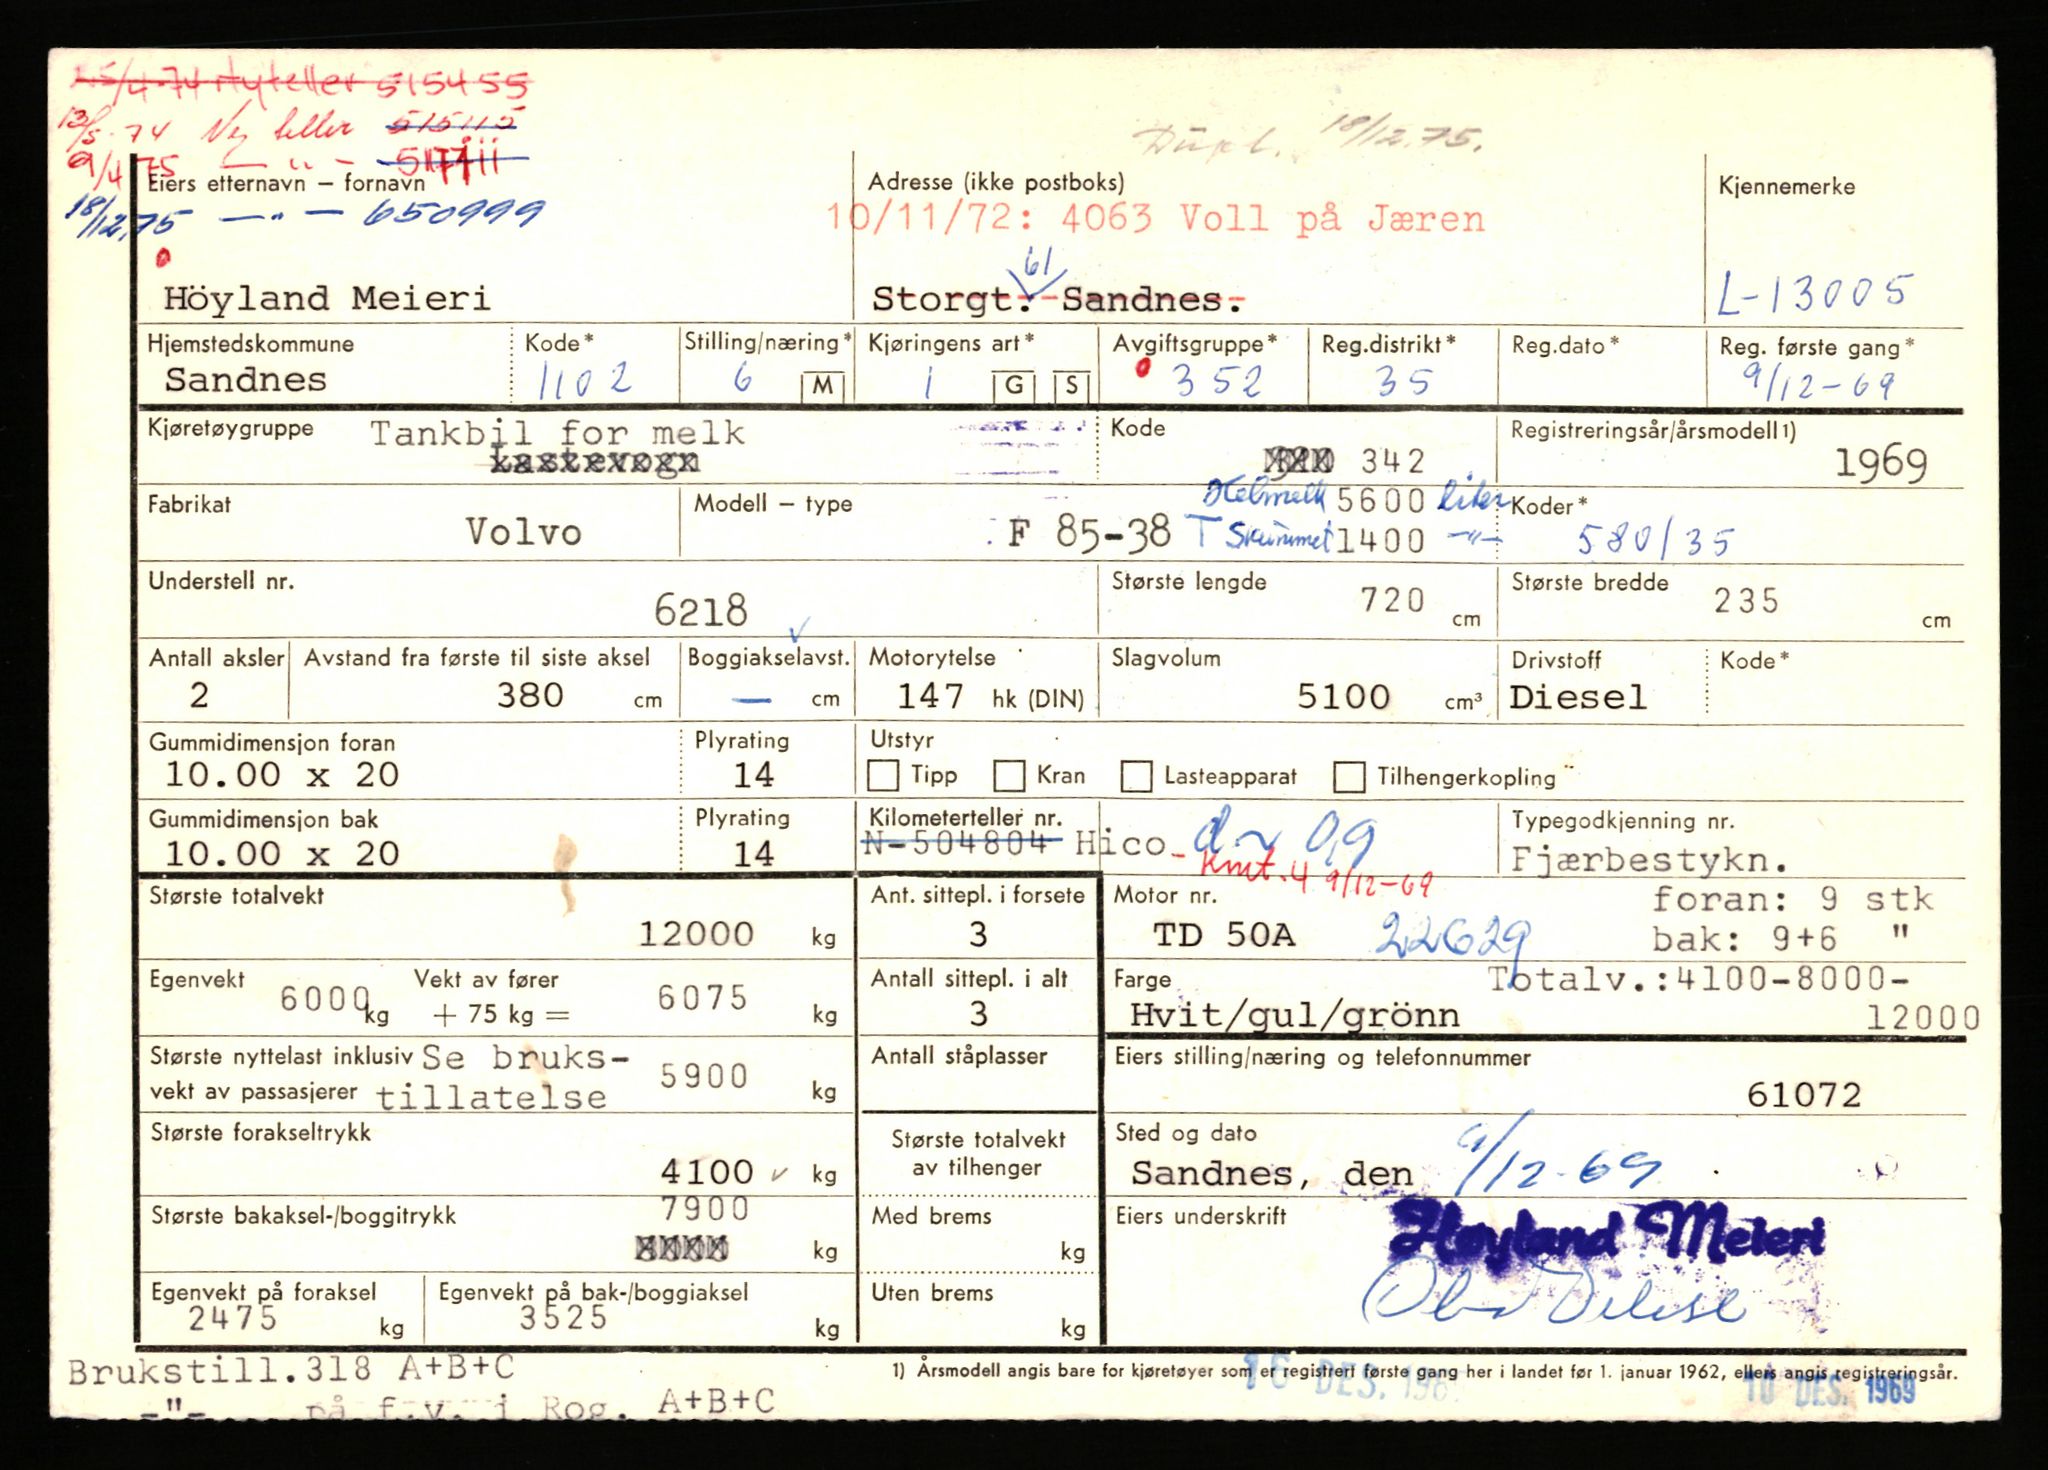 25/4-74 Nyteller 515455
13/5-74 Ny teller 515115
9/4 75 — " —
18/12.75 — " — 650999
Dupl. 18/12.75.
Eiers etternavn – fornavn
Höyland Meieri
Adresse (ikke postboks)
10/11/72: 4063 Voll på Jæren
61
Storgt. Sandnes.
Kjennemerke
L-13005
Hjemstedskommune
Sandnes
Kode*
1102
Stilling/næring*
6 M
Kjøringens art*
1 G S
Avgiftsgruppe*
352
Reg.distrikt*
35
Reg.dato*
Reg. første gang*
9/12-69
Kjøretøygruppe
Tankbil for melk
Lastevogn
Kode
342
Registreringsår/årsmodell 1)
1969
Fabrikat
Volvo
Modell – type
F 85-38 T
Helmelk 5600 liter
Skummet 1400 — " —
Koder*
580/35
Understell nr.
6218
Største lengde
720 cm
Største bredde
235 cm
Antall aksler
2
Avstand fra første til siste aksel
380 cm
Boggiakselavst.
— cm
Motorytelse
147 hk (DIN)
Slagvolum
5100 cm³
Drivstoff
Diesel
Kode*
Gummidimensjon foran
10.00 x 20
Plyrating
14
Utstyr
Tipp Kran Lasteapparat Tilhengerkopling
Gummidimensjon bak
10.00 x 20
Plyrating
14
Kilometerteller nr.
N-504804 Hico 0,9
Kmt. 4 9/12-69
Typegodkjenning nr.
Fjærbestykn.
foran: 9 stk
bak: 9+6 "
Totalv.:4100-8000-
12000
Største totalvekt
12000 kg
Ant. sittepl. i forsete
3
Motor nr.
TD 50A 22629
Egenvekt
6000 kg
Vekt av fører
+ 75 kg =
6075 kg
Antall sittepl. i alt
3
Farge
Hvit/gul/grönn
Største nyttelast inklusiv
vekt av passasjerer
Se bruks-
tillatelse
5900 kg
Antall ståplasser
Eiers stilling/næring og telefonnummer
61072
Største forakseltrykk
4100 kg
Største totalvekt
av tilhenger
Sted og dato
Sandnes, den 9/12-69
Største bakaksel-/boggitrykk
7900
kg
Med brems
kg
Eiers underskrift
Høyland Meieri
Egenvekt på foraksel
2475 kg
Egenvekt på bak-/boggiaksel
3525 kg
Uten brems
kg
1) Årsmodell angis bare for kjøretøyer som er registrert første gang her i landet før 1. januar 1962, ellers angis registreringsår.
Brukstill.318 A+B+C
-"- på f.v. i Rog. A+B+C
16 DES. 196
10 DES. 1969